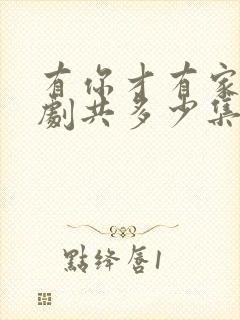 有你才有家
劇共多少集
點绛唇1